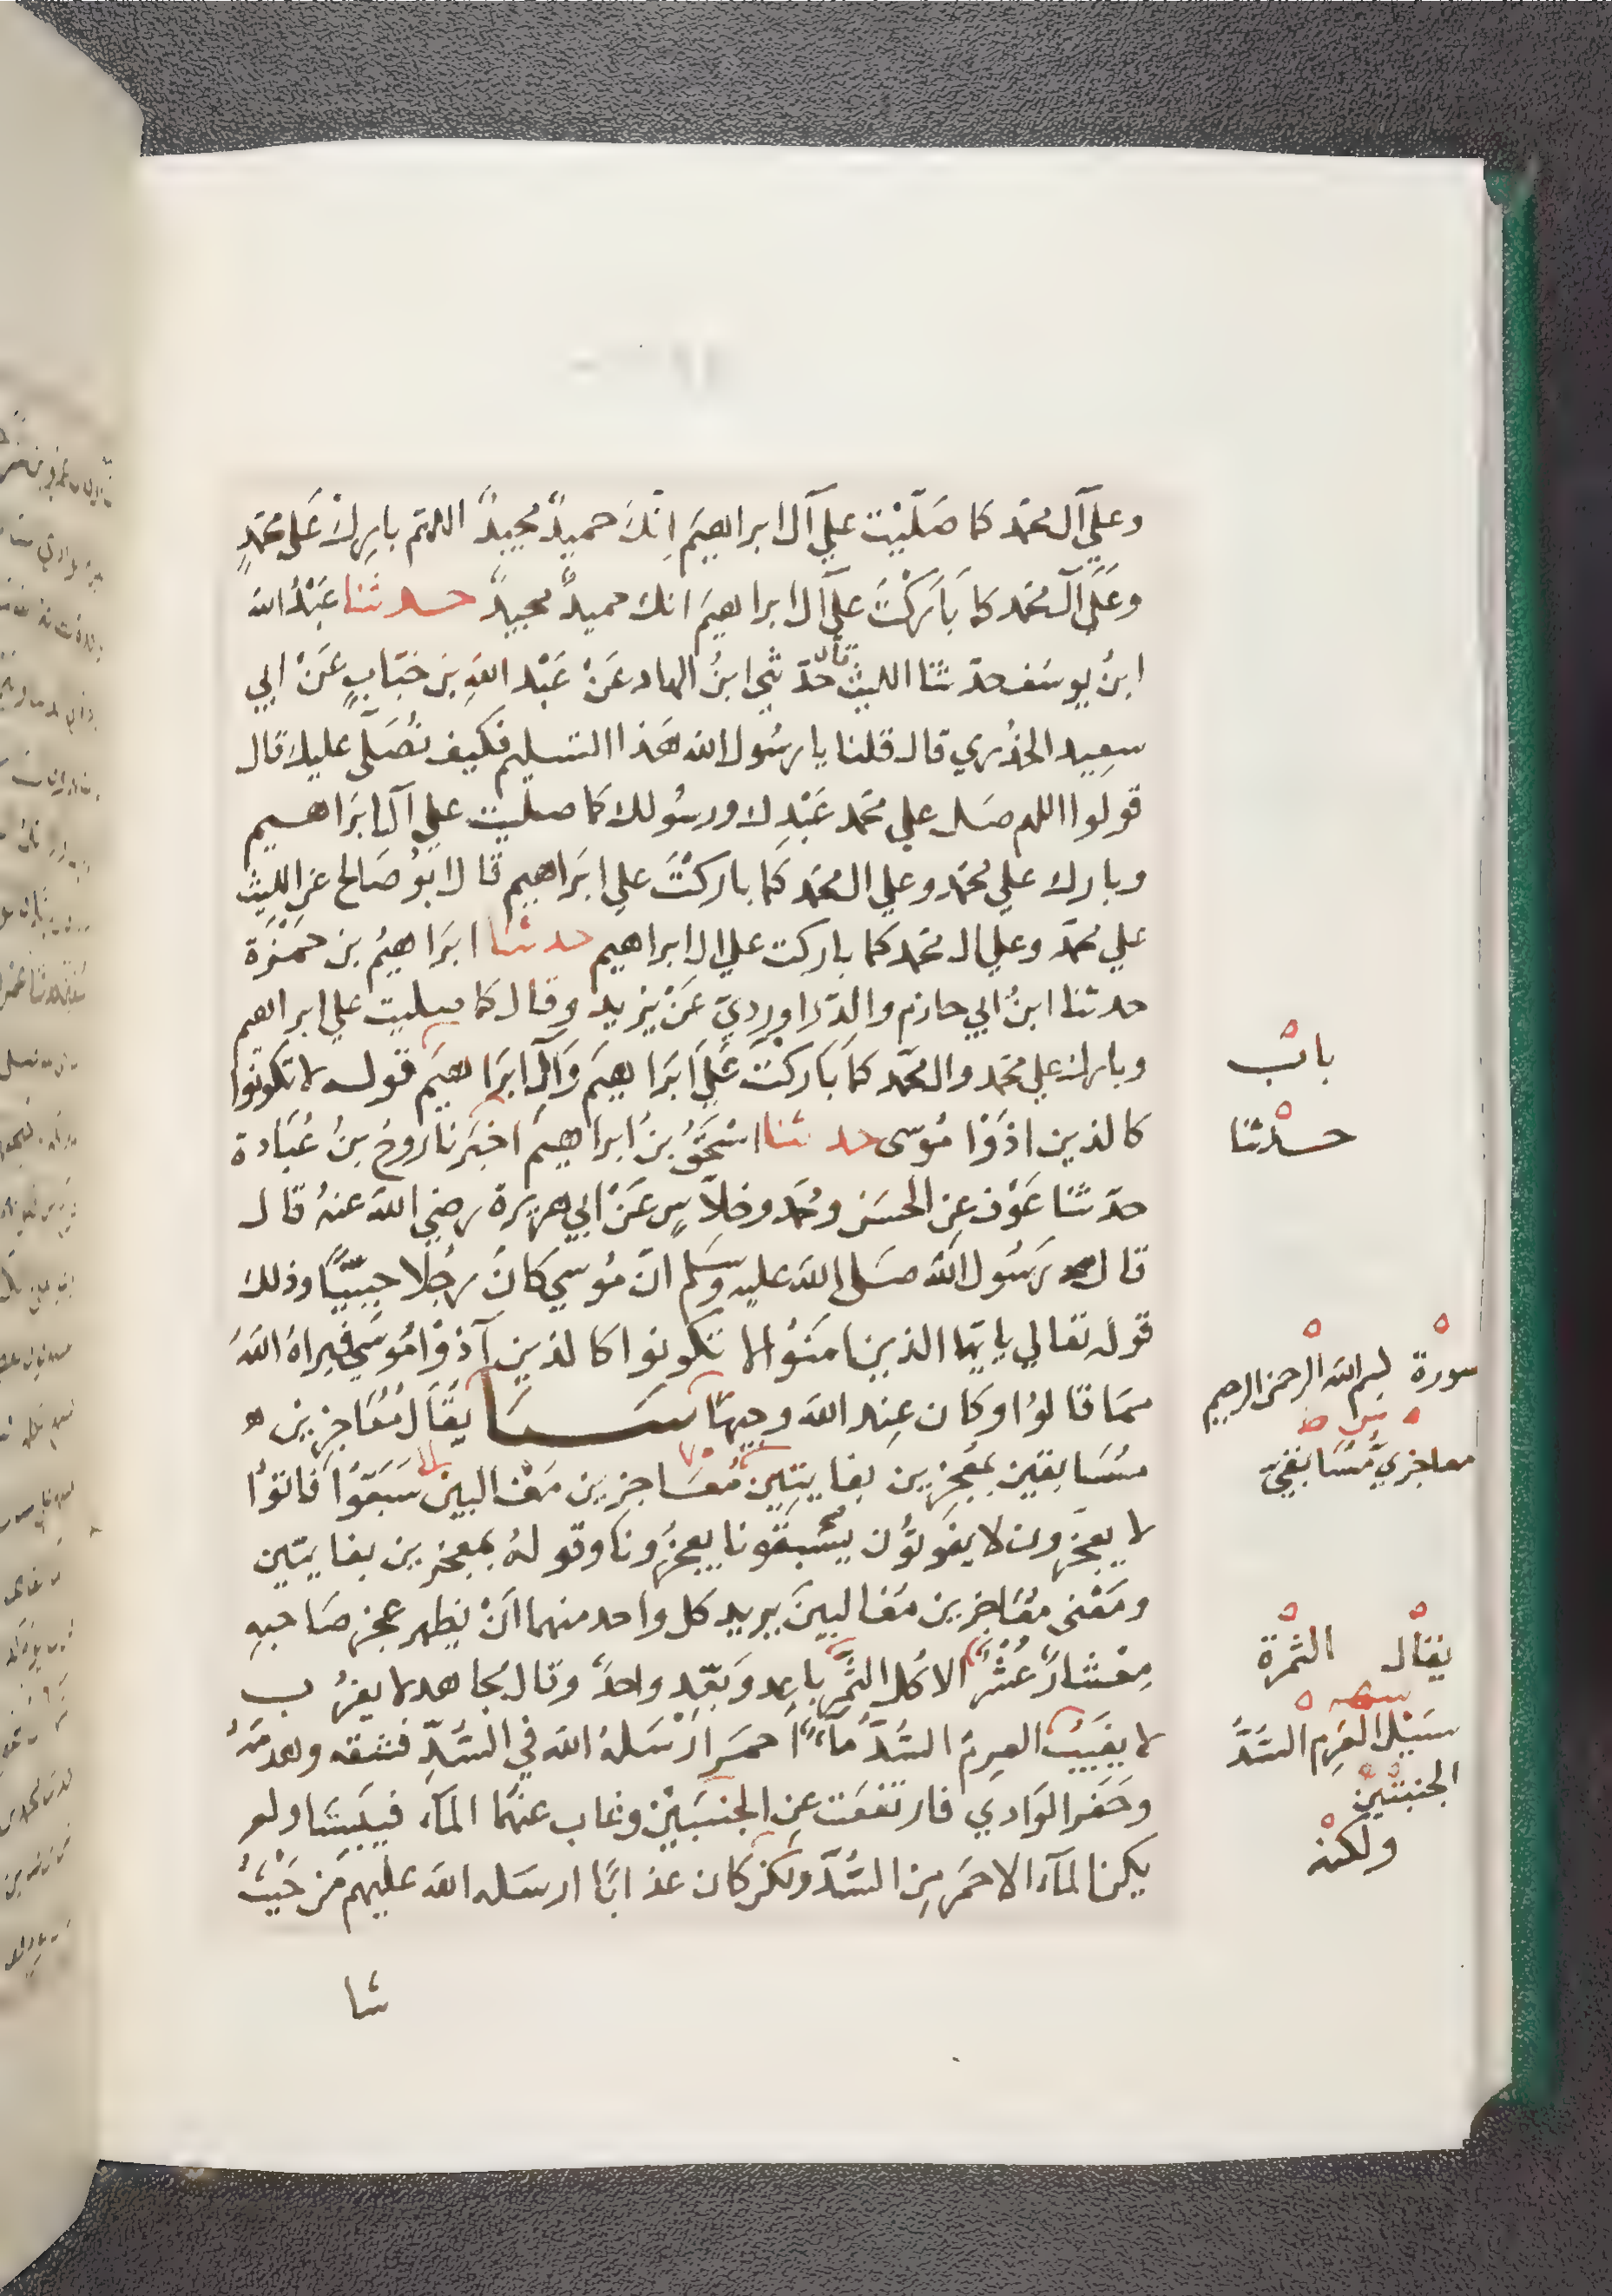 وعلي آل محمد كما صَلَّيْت علي آل ابراهيمَ اِنّكَ حميدٌ مجيدٌ اللهم بارِكْ عَلى محمدٍ
وعَلَى آل محمد كما بَارَكْتَ علي آل ابراهيمَ انك حميدٌ مجيدٌ حدثنا عَبْدُ الله
ابنُ يوسُف حدثنا الليث قال حَدّثني ابنُ الهاد عَنْ عَبْد اللهِ بن خبّابٍ عَنْ ابي
سعِيد الخذري قال قلنا يا رسُول الله هَذا التسليم فكيف نُصَلّي عليك قال
قولوا اللهم صَل علي محمد عَبْدِك ورسُولك كما صليت علي آل ابرَاهيم
وبارك علي محمد وعلي ال محمد كما باركتَ علي ابرَاهيم قال ابوُ صَالح عن الليث
علي محمدٍ وعلي ال محمد كما باركت علي ال ابراهيم حدثنا ابرَاهيمُ بن حَمْزَة
حدثنا ابنُ ابي حازم والدّرَاورديّ عَنْ يزيد وقال كما صليت علي ابراهيم
وبارك علي محمد وال محمد كما بَاركتَ عَلَي ابرَاهيمَ وَآل ابرَاهيمَ قوله لا تكونوا
كالذين اذَوْا مُوسى حدثنا اسْحَقُ بنُ ابراهيمَ اخبرَنا روحُ بنُ عُبَادة
حدثنا عَوْف عنِ الحسَن ومحمد وخلاَّسٍ عَنْ ابي هريرة رضي الله عنهُ قال
قال رَسُول الله صَلى الله عليه وسَلم انّ مُوسي كانَ رجُلا حيِيًّا وذلك
قوله تعالي يا ايها الذين امنَوُا لا تكونوا كالذين آذوْا مُوسَي فبراهُ اللهُ
ممّا قالوُا وكان عِند الله وجيهًا سَبَا يقَال مُعَاجزين
مسَابقين بمعُجزين بفايتِين مُعَاجزين مَغالبين سَبَقوُا فاتوُا
لا يعجزون لا يفوتوُن يسْبقُونا يعجزُونا وقولهُ بمعجزين بفايتين
ومَعْنى معُاجزين مَغالبينَ يريد كل واحد منهما انْ يظهر عجز صَاحبهِ
مِعْشارٌ عُشْرٌ الاكل الثمَر باعِد وَبَعّد واحدٌ وقال مجاهد لا يعزُب
لا يغيَبُ العرِمُ السّدُ مَآءٌ احمَر ارْسَلهُ الله في السُّدِّ فشقه وهدمَهُ
وحَفر الوَادي فارتفعَت عنِ الجنبَيْن وغاب عنهُما المآء فيبِسَتا ولم
يكن المآء الاحمَر منِ السّدّ ولكن كان عذابًا ارسَله الله عليهم من حَيْثُ
شا
باب
حدثنا
سورة بسم الله الرحمن الرحيم
معاجزيّ مُسَابقيّ
يقال الثمرة
سَيْل العَرِم السّدُّ
الجنبتين
ولكنه